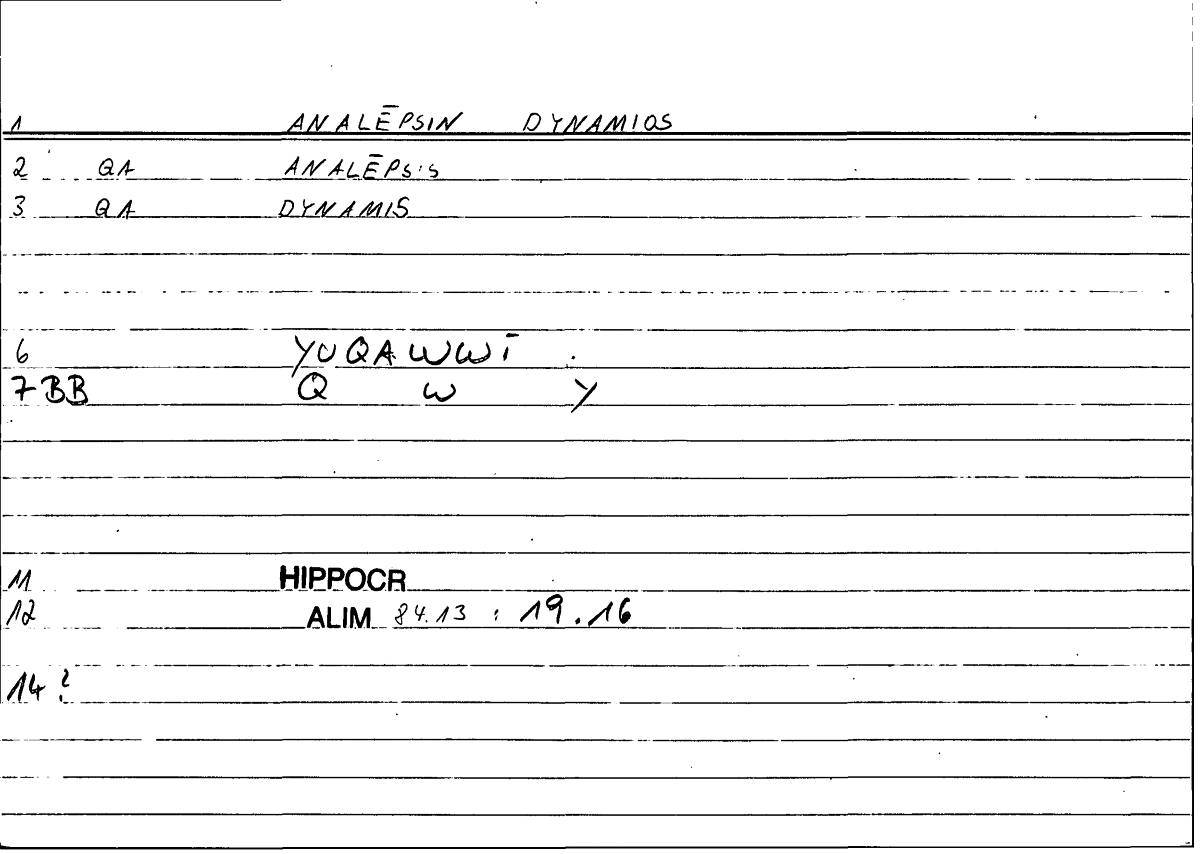 1 ANALĒPSIN DYNAMIOS
2 QA ANALĒPSIS
3 QA DYNAMIS
6 YUQAWWĪ
7 BB Q W Y
11 HIPPOCR
12 ALIM 84.13 : 19.16
14 ?